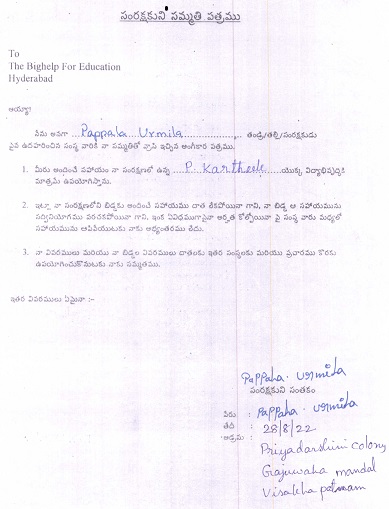 సంరక్షకుని సమ్మతి పత్రము
To
The Bighelp For Education
Hyderabad
అయ్యా!
నేను అనగా ...Pappala Urmila..., తండ్రి/తల్లి/సంరక్షకుడు
పైన ఉదహరించిన సంస్థ వారికి నా సమ్మతితో వ్రాసి ఇచ్చిన అంగీకార పత్రము.
1. మీరు అందించే సహాయం నా సంరక్షణలో ఉన్న ...P. Kartheek...యొక్క విద్యాభివృద్ధికి
మాత్రమే ఉపయోగిస్తాను.
2. ఇట్లా నా సంరక్షణలోని బిడ్డకు అందించే సహాయము దాత లేకపోయినా గాని, నా బిడ్డ ఆ సహాయమును
సద్వినియోగము పరచకపోయినా గాని, ఇంక ఏవిధముగానైనా అర్హత కోల్పోయినా పై సంస్థ వారు మధ్యలో
సహాయమును ఆపివేయుటకు నాకు అభ్యంతరము లేదు.
3. నా వివరములు మరియు నా బిడ్డల వివరములు దాతలకు ఇతర సంస్థలకు మరియు ప్రచారము కొరకు
ఉపయోగించుకొనుటకు నాకు సమ్మతము.
ఇతర వివరములు ఏమైనా :-
Pappala. Urmila
సంరక్షకుని సంతకం
పేరు : Pappala. Urmila
తేదీ : 28/8/22
అడ్రసు : Priyadarshini colony
Gajuwaka mandal
Visakhapatnam